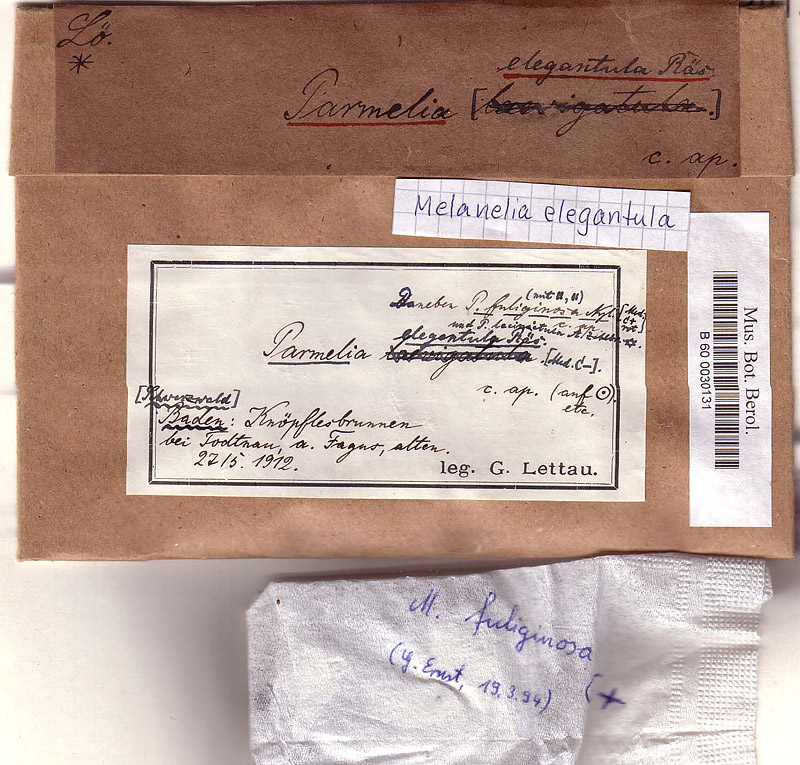 Lö.
*
elegantula Räs.
Parmelia [laevigatula.]
c. ap.
Melanelia elegantula
Mus. Bot. Berol.
B 60 0030131
(mit
Daneben P. fuliginosa Nyl.
und P.
elegantula Räs.
Parmelia laevigatula. [Med. C–].
c. ap. (auf ⊙).
etc.
[Schwarzwald]
Baden: Knöpflesbrunnen
bei Todtnau, a. Fagus, alten.
27/5. 1912.
leg. G. Lettau.
M. fuliginosa
(G. Ernst, 19.3.94) (+